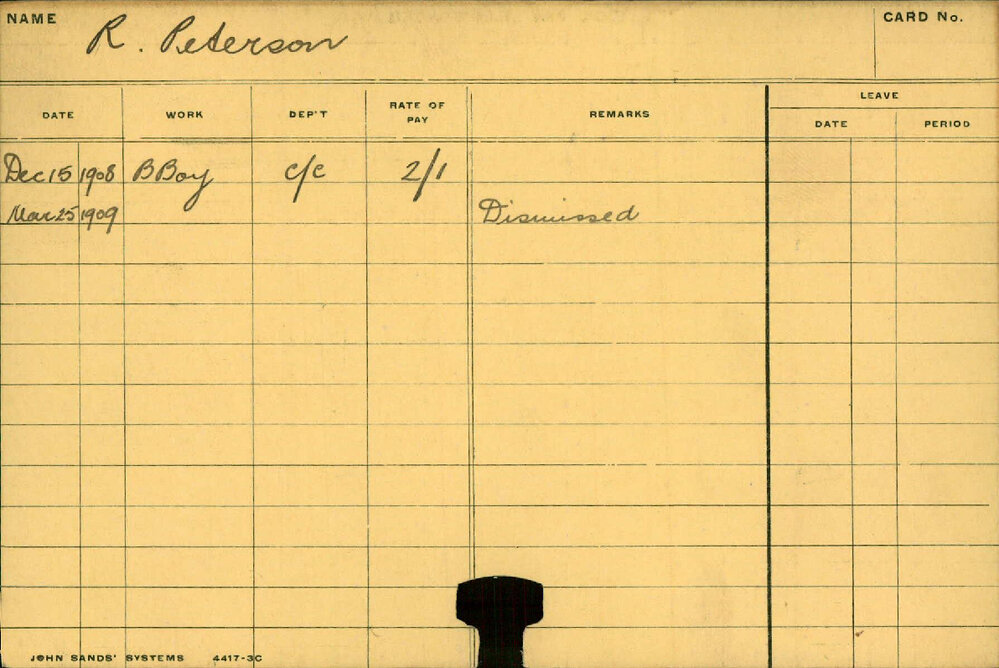 NAME R. Peterson CARD No.
DATE WORK DEP'T RATE OF PAY REMARKS LEAVE
DATE PERIOD
Dec 15 1908 B Boy c/c 2/1
Mar 25 1909 Dismissed
JOHN SANDS' SYSTEMS 4417-3C